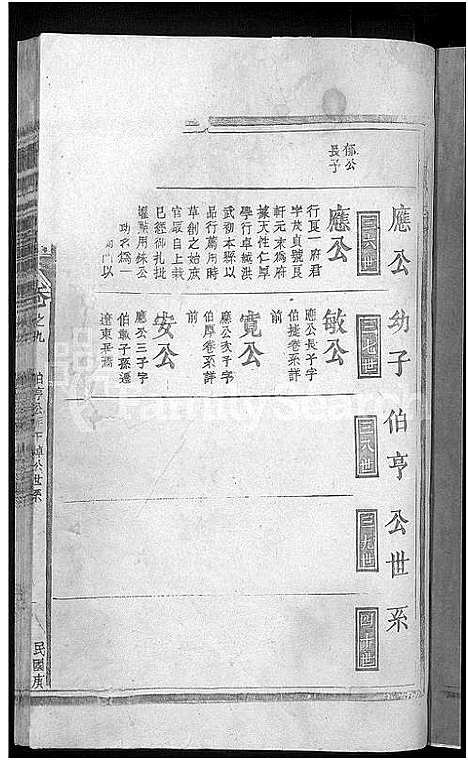 應公幼子伯亨公世系
三六世
三七世
三八世
三九世
四十世
郁公
長子
應公
行夏一府君
字茂貞號夏
軒元末爲府
據天性仁厚
學行卓越洪
武初本縣以
品行薦用時
草創之始庶
官取自上裁
已經御扎批
擢用朱公
功名爲一
以
敏公
應公長子字
伯捷卷系詳
前
寬公
應公次子字
伯厚卷系詳
前
安公
應公三子字
伯敬子孫遷
遼東
卷之九
伯亨公
公世系
民國庚
FamilySearch